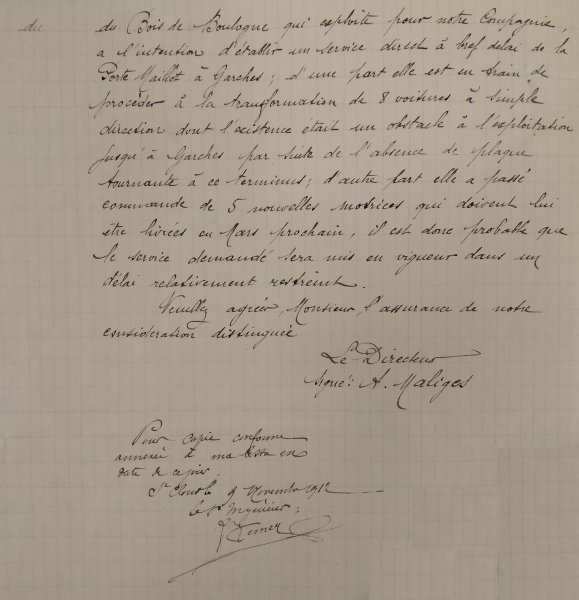 du
du Bois de Boulogne qui exploite pour notre Compagnie,
a l'intention d'établir un service direct à bref délai de la
Porte Maillot à Garches ; d'une part elle est en train de
procéder à la transformation de 8 voitures à simple
direction dont l'existence était un obstacle à l'exploitation
jusqu'à Garches par suite de l'absence de plaque
tournante à ce terminus ; d'autre part elle a passé
commande de 5 nouvelles motrices qui doivent lui
être livrées en Mars prochain, il est donc probable que
le service demandé sera mis en vigueur dans un
délai relativement restreint.
Veuillez agréer, Monsieur, l'assurance de notre
considération distinguée
Le Directeur
signé : A. Maliges
Pour copie conforme
annexée à ma lettre en
date de ce jour.
St Cloud le 9 Novembre 1912
Ingénieur ;